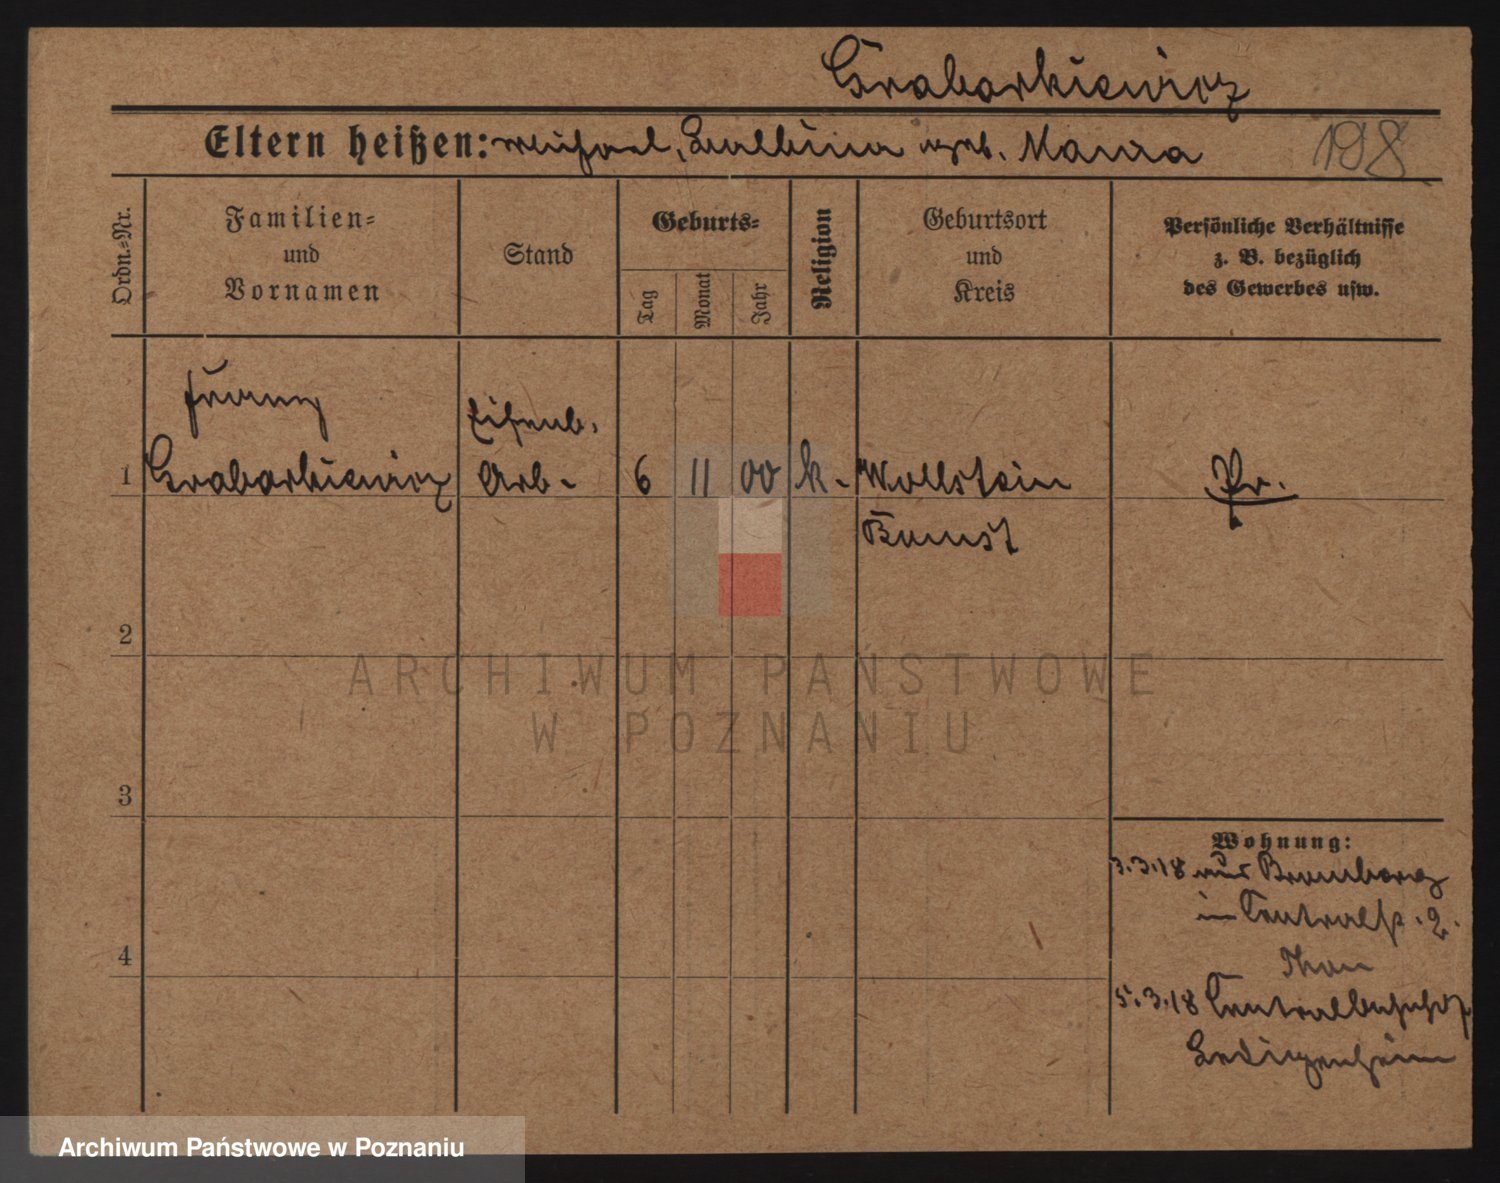 Grabarkiewicz
Eltern heißen: Michael, Balbina geb. Mania
198
Ordn.=Nr.
Familien=
und
Vornamen
Stand
Geburts=
Tag
Monat
Jahr
Religion
Geburtsort
und
Kreis
Persönliche Verhältnisse
z. B. bezüglich
des Gewerbes usw.
1
Franz
Grabarkiewicz
Eisenb.
Arb.
6
11
00
k.
Wollstein
Bomst
Pr.
2
3
4
Wohnung:
3.3.18 aus Bromberg
in Centralh. 2.
5.3.18 Centralbahnhof
Ledigenheim
ARCHIWUM PAŃSTWOWE
W POZNANIU
Archiwum Państwowe w Poznaniu